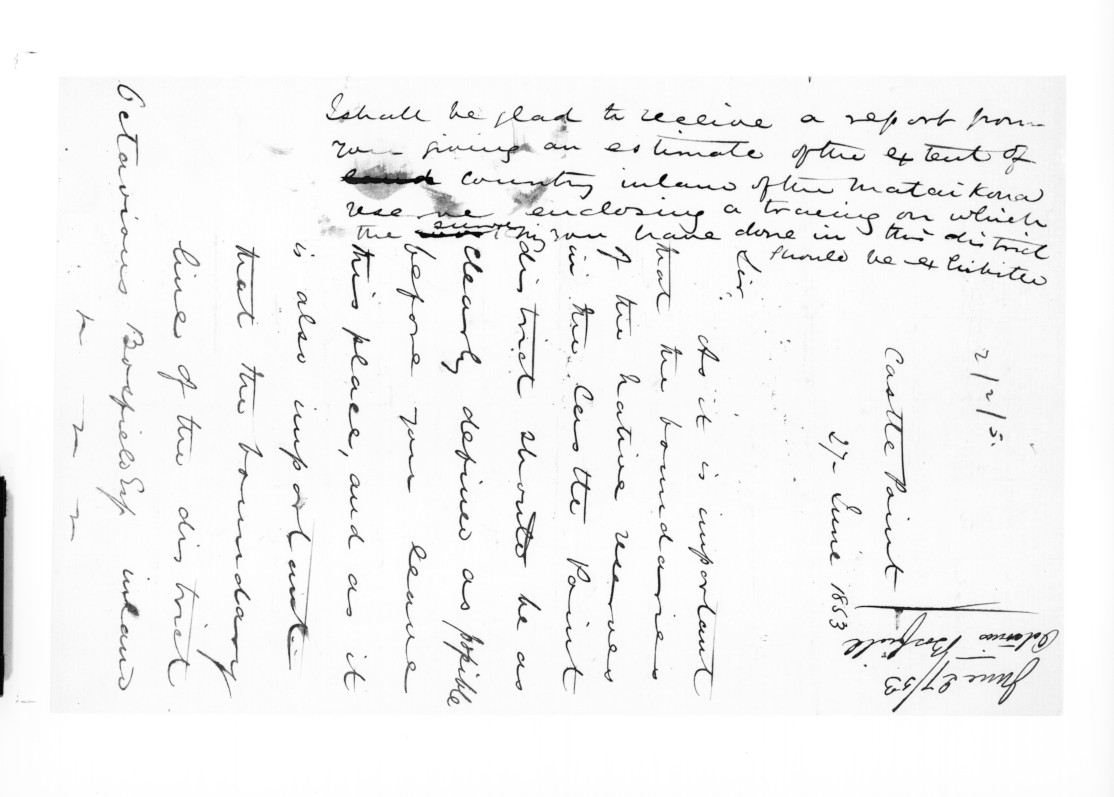 2/2/5.
Castle Point
27 June 1853
Sir,
As it is important
that the boundaries
of the native reserves
in the Castle Point
district should be as
clearly defined as possible
before you leave
this place, and as it
is also important
that the boundary
line of the district
inland
Octavious Bosfield Esq
I shall be glad to receive a report from
you giving an estimate of the extent of
land country inland of the Matai Kona
reserve enclosing a tracing on which
the survey you have done in this district
should be exhibited
June 27/53
Octavious Bosfield